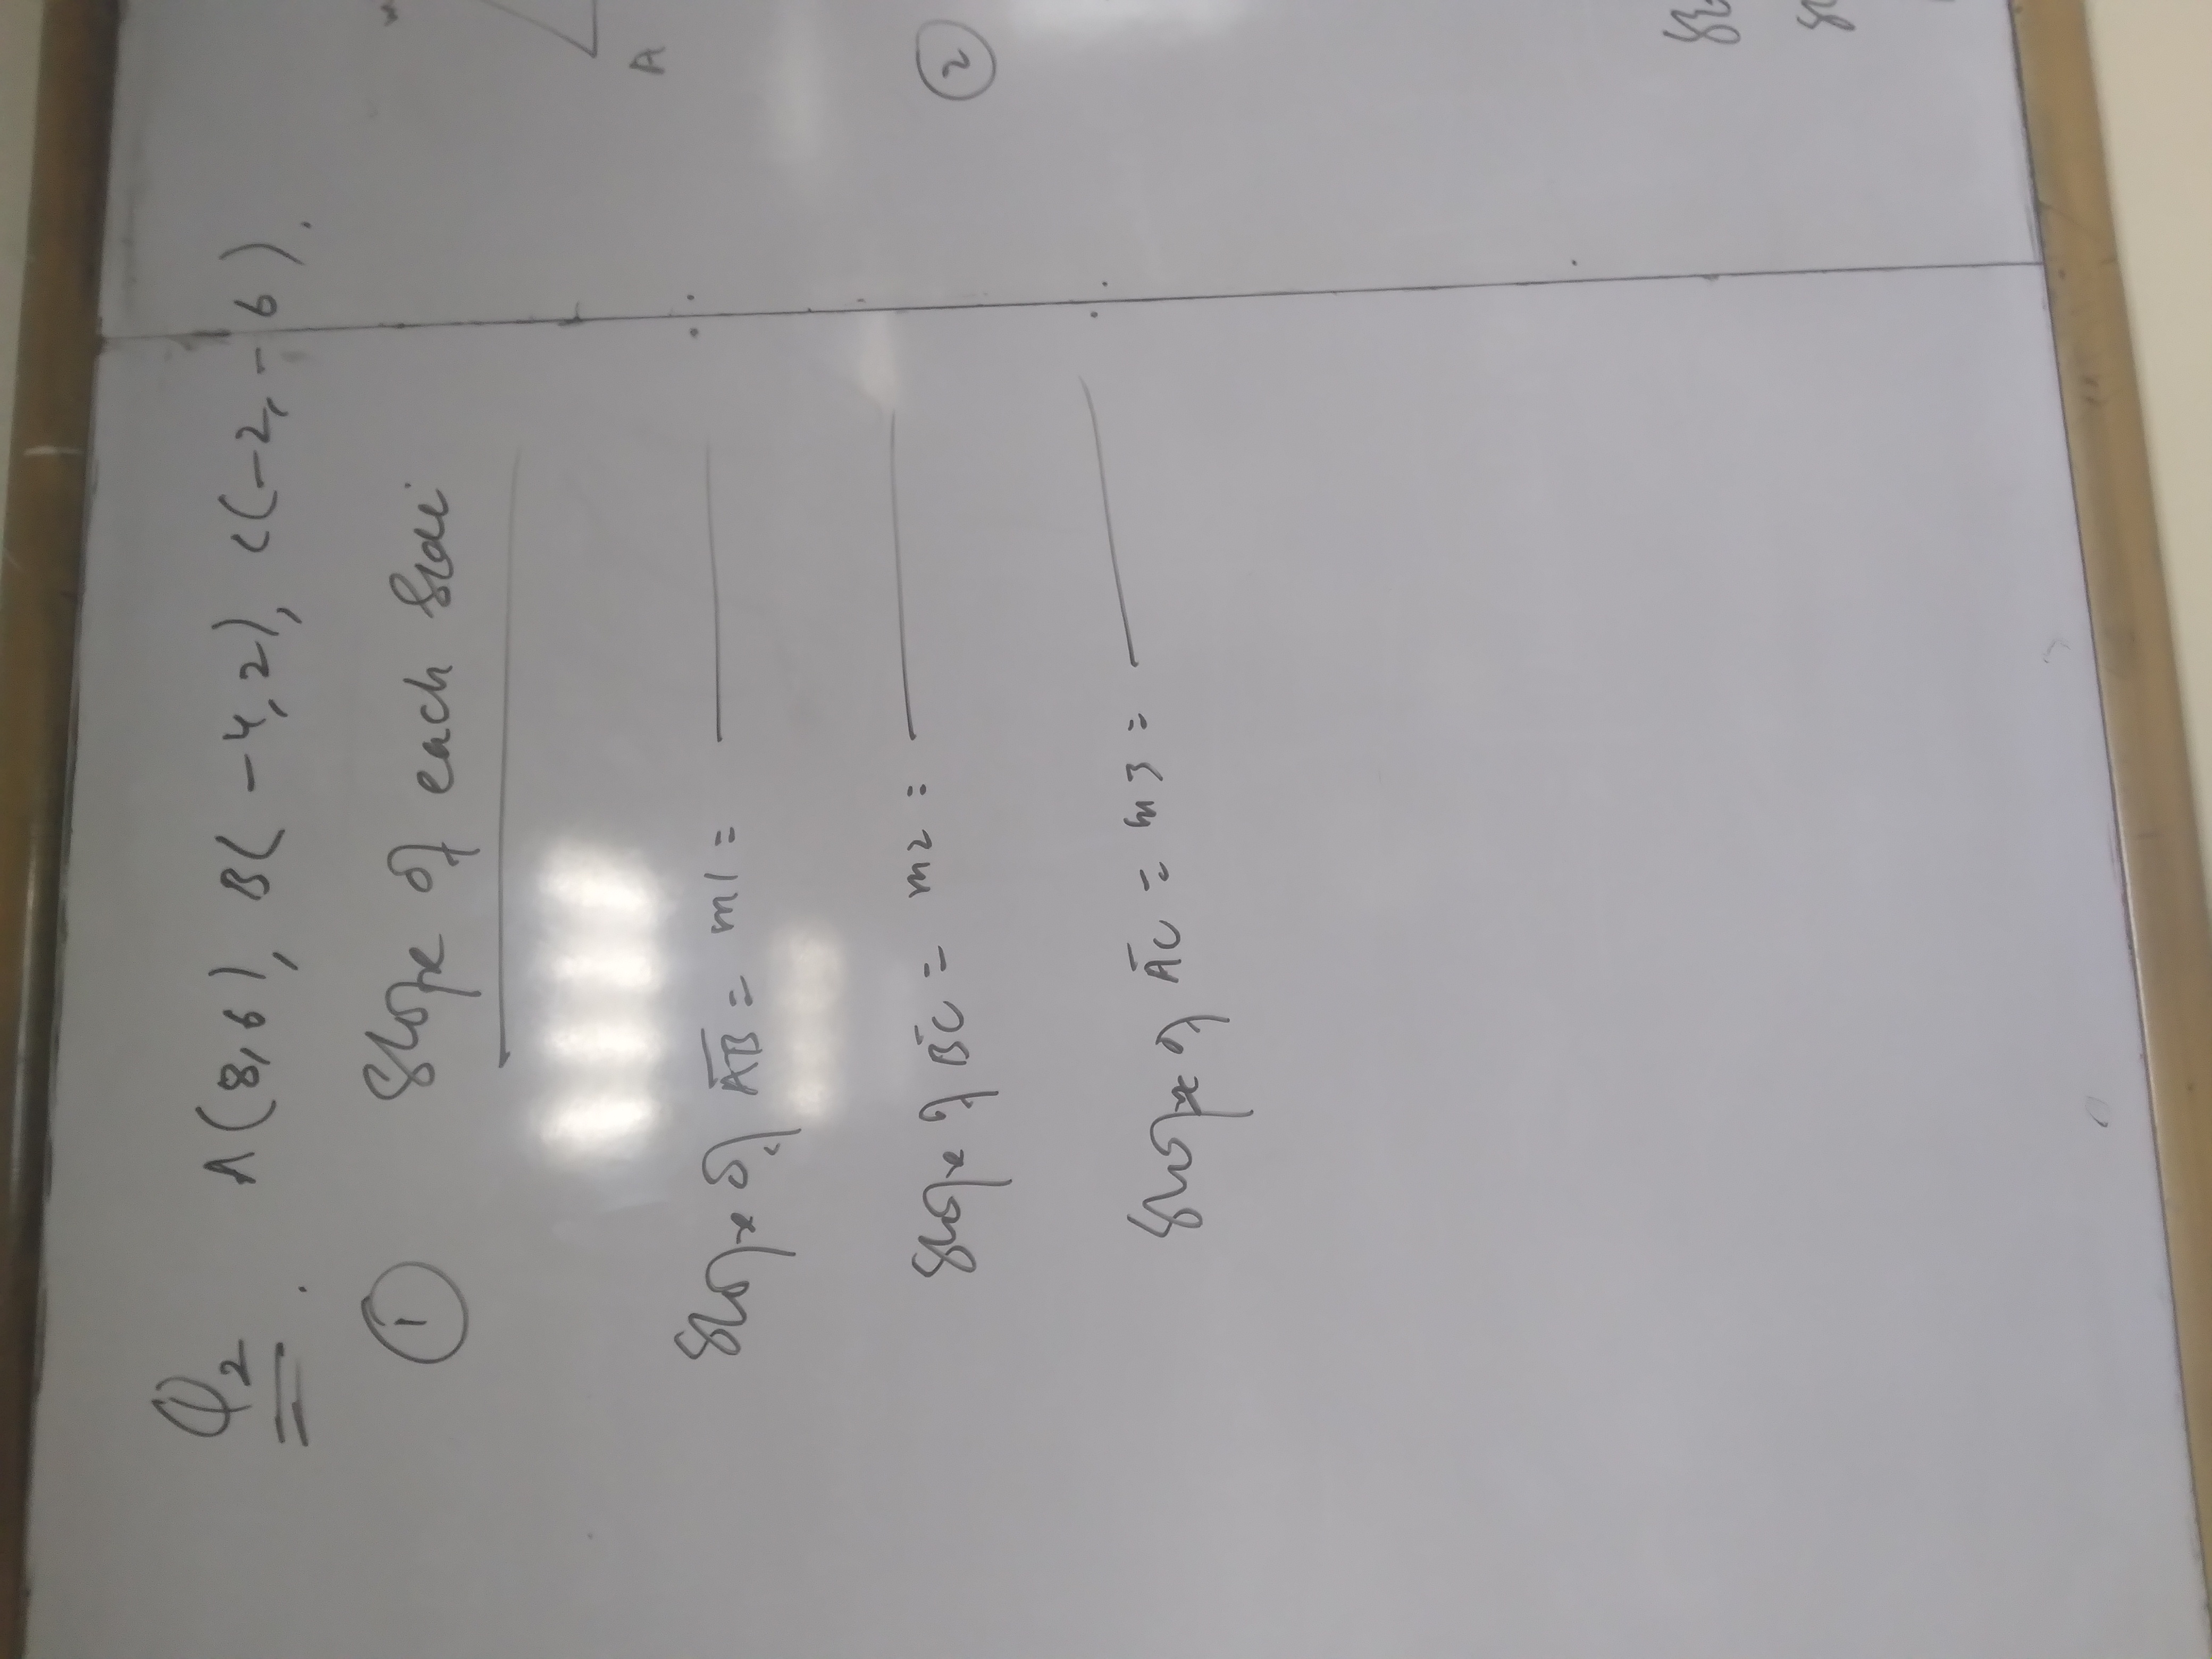 Q2. A(8,6), B(-4,2), C(-2,-6).
① Slope of each Side
Slope of AB = m1 =
Slope of BC = m2 =
Slope of AC = m3 =
A
②